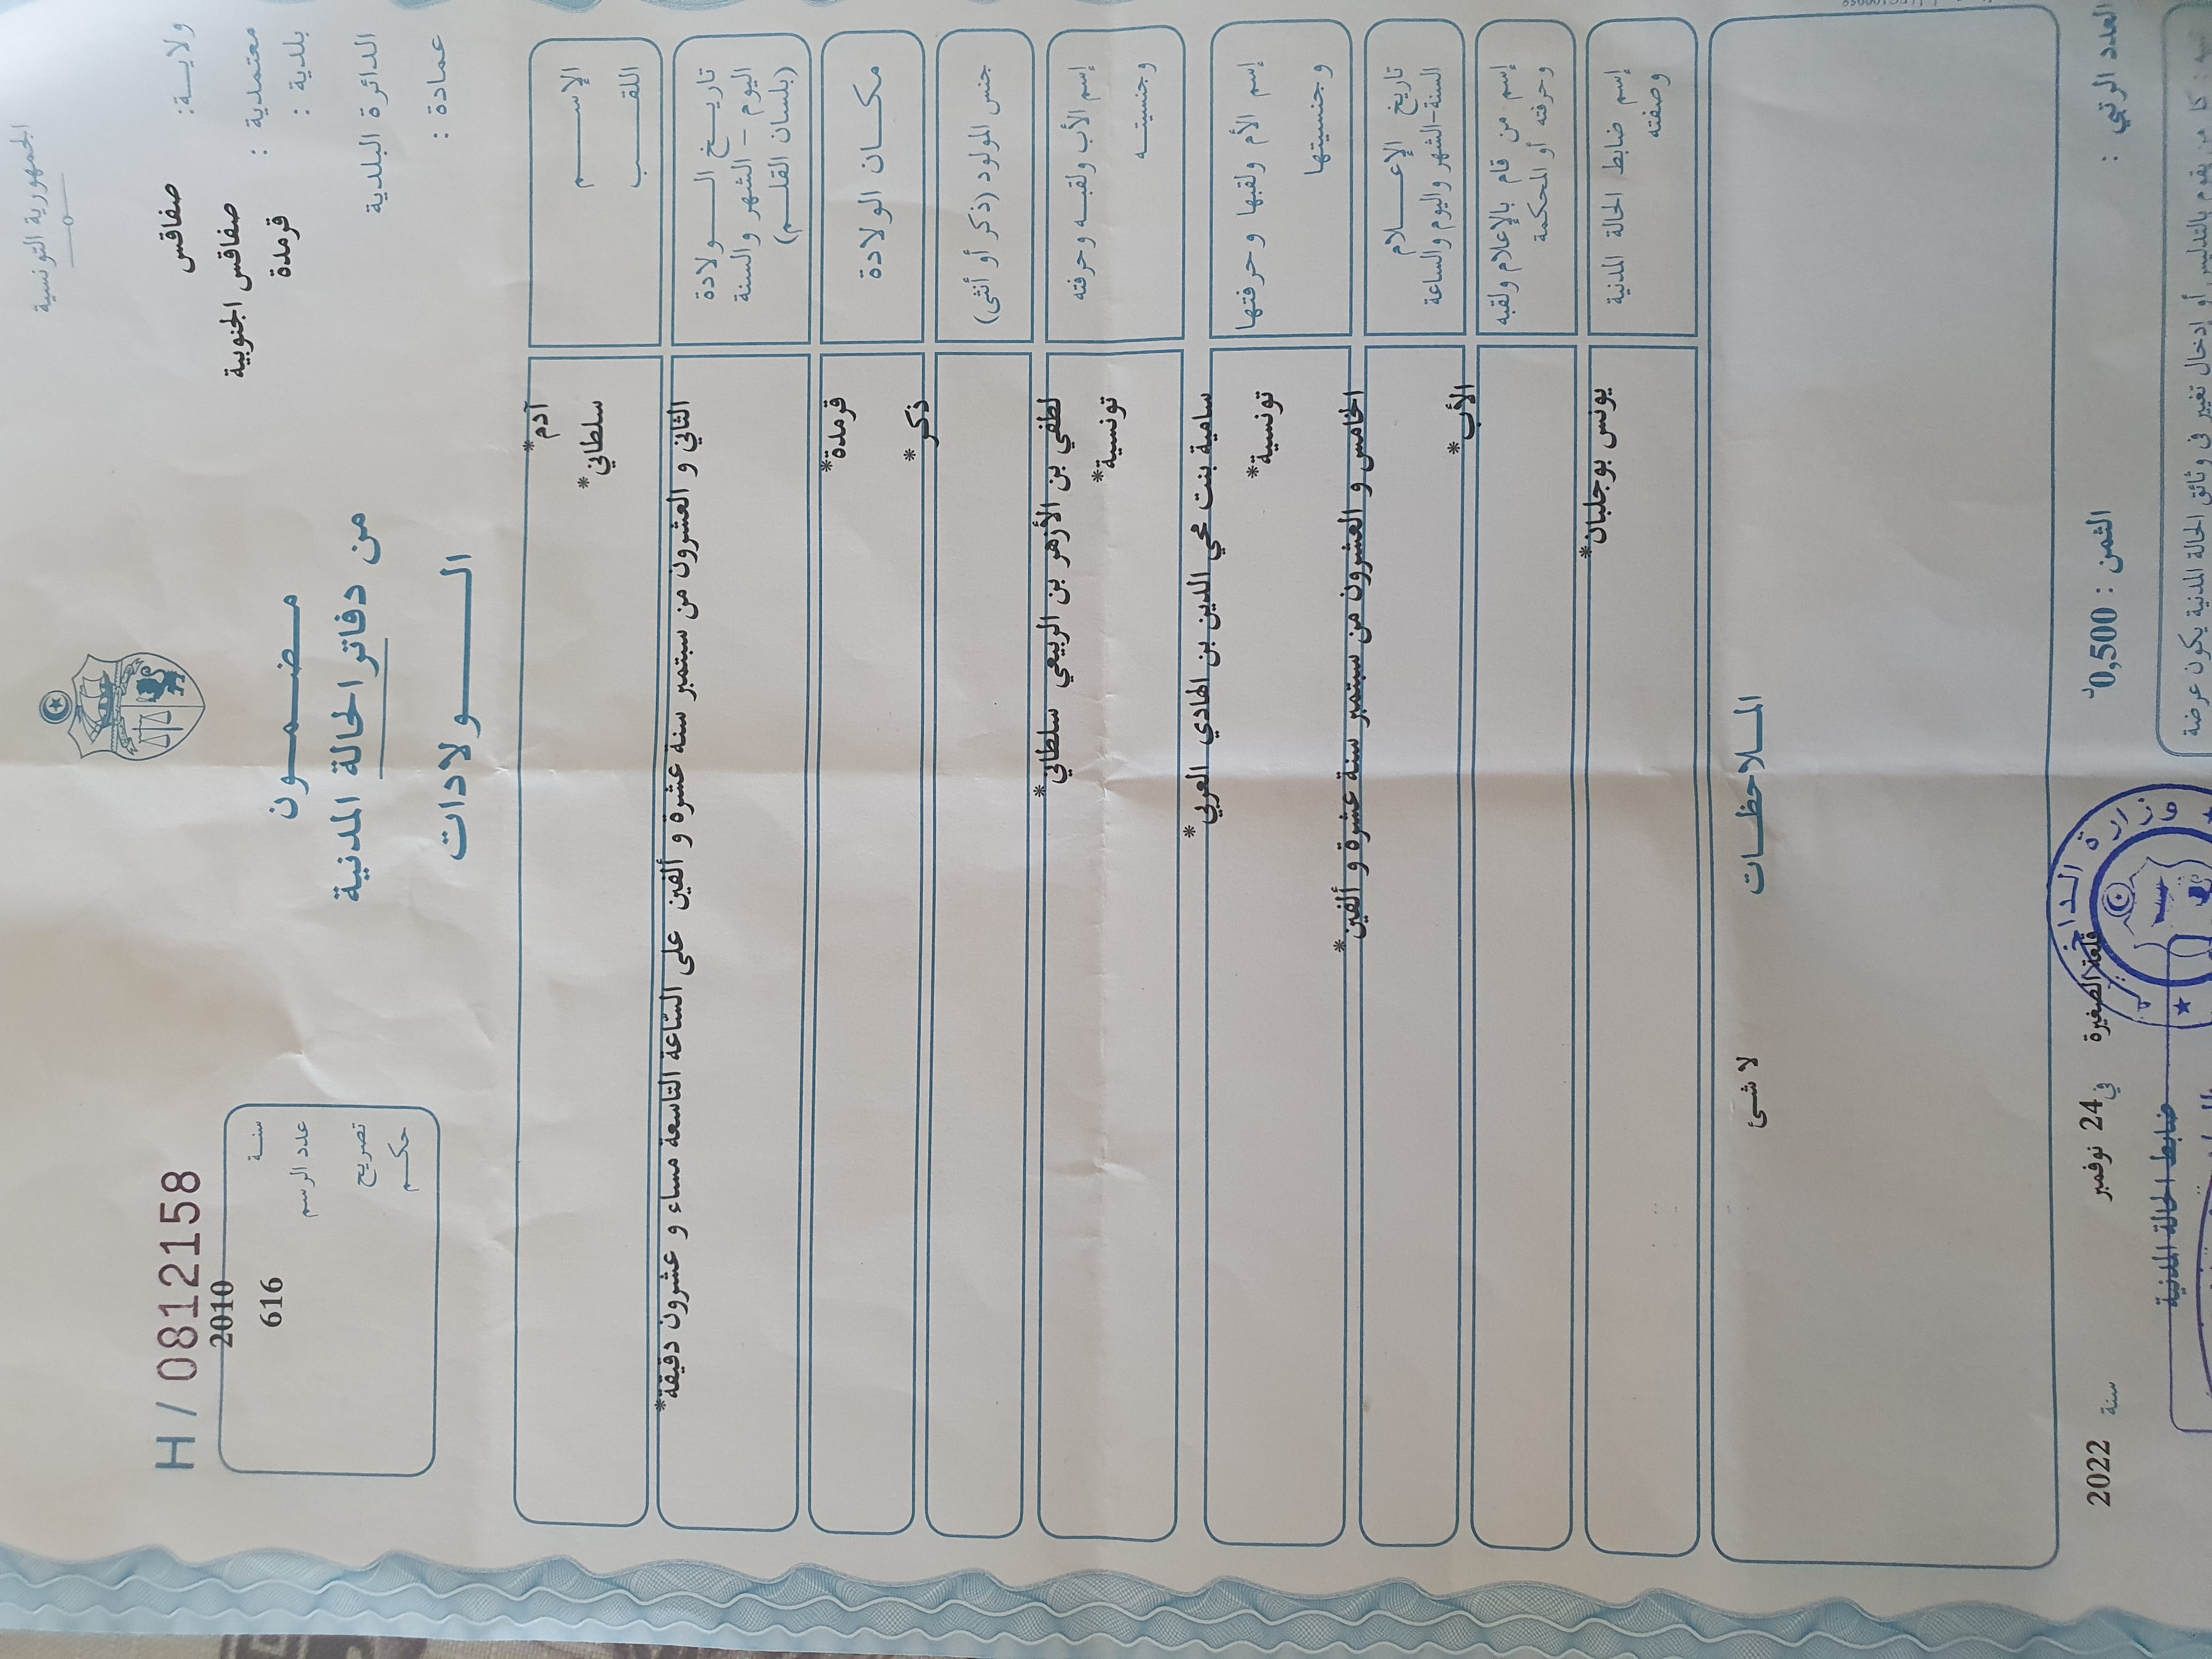 الجمهورية التونسية
ولايـــة: صفاقس
معتمدية : صفاقس الجنوبية
بلدية : قرمدة
الدائرة البلدية
عمادة :
مـضـمـــون
من دفاتر الحالة المدنية
الـــــولادات
H / 0812158
سنـة 2010
عدد الرسم 616
تصريح
حكــم
الإســـــم آدم*
اللقـــب سلطاني*
تاريــخ الــــولادة الثاني و العشرون من سبتمبر سنة عشرة و ألفين على الساعة التاسعة مساء و عشرون دقيقة*
اليوم - الشهر والسنة
(بلسان القلــم)
مكــان الولادة قرمدة*
جنس المولود (ذكر أو أنثى) ذكر*
إسم الأب ولقبــه وحرفته لطفي بن الأزهر بن الربيعي سلطاني*
وجنسيتــه تونسية*
إسم الأم ولقبها وحرفتها سامية بنت محي الدين بن الهادي العربي*
وجنسيتها تونسية*
تاريخ الإعــــلام الخامس و العشرون من سبتمبر سنة عشرة و ألفين*
السنة-الشهر واليوم والساعة
إسم من قام بالإعلام ولقبه الأب*
وحرفته أو المحكمة
إسم ضابط الحالة المدنية يونس بوجلبان*
وصفته
المــلاحظــات
لا شئ
العدد الرتبي :
الثمن : 0,500د
قلعة الصغيرة في 24 نوفمبر سنة 2022
ضابط الحالة المدنية
كل من يقوم بالتدليس أو إدخال تغيير في وثائق الحالة المدنية يكون عرضة